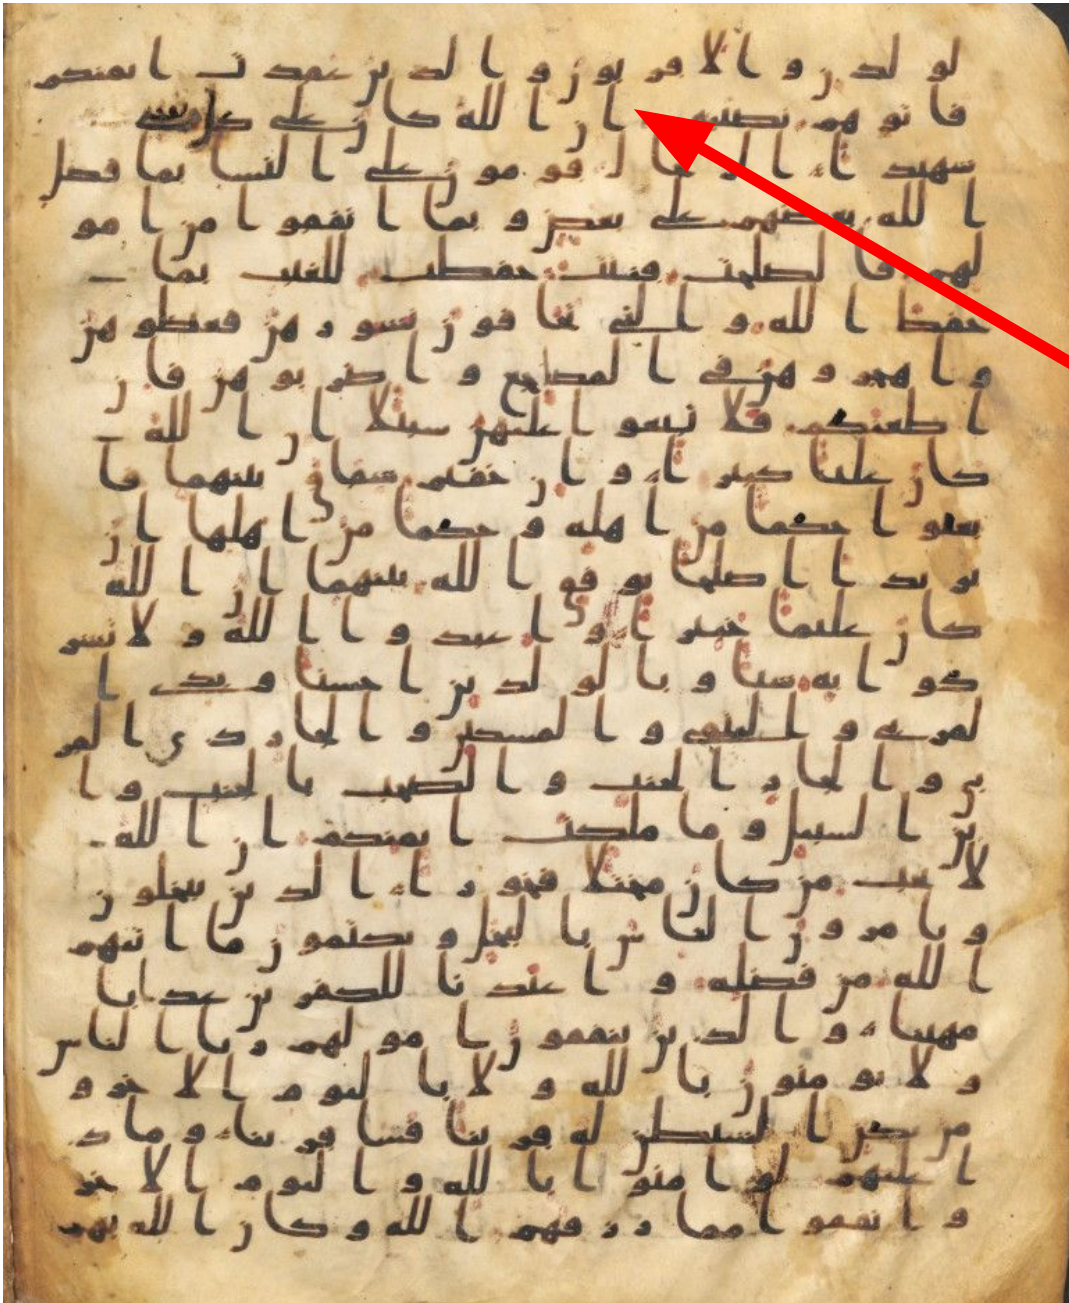 لولدن والاقربون والذين عقدت ايمنكم
فاتوهم نصيبهم ان الله كان على كل شى
شهيدا الرجال قومون على النسا بما فضل
الله بعضهم على بعض وبما انفقوا من امو
لهم فالصلحت قنتت حفظت للغيب بما
حفظ الله والتى تخافون نشوزهن فعظوهن
واهجروهن فى المضاجع واضربوهن فان
اطعنكم فلا تبغوا عليهن سبيلا ان الله
كان عليا كبيرا وان خفتم شقاق بينهما فا
بعثوا حكما من اهله وحكما من اهلها ان
يريدا اصلحا يوفق الله بينهما ان الله
كان عليما خبيرا واعبدوا الله ولا تشر
كوا به شيا وبالولدين احسنا وبذى ا
لقربى واليتمى والمسكين والجار ذى القر
بى والجار الجنب والصحب بالجنب وا
بن السبيل وما ملكت ايمنكم ان الله
لا يحب من كان مختلا فخورا الذين يبخلون
ويامرون الناس بالبخل ويكتمون ما اتيهم
الله من فضله واعتدنا للكفرين عذابا
مهينا والذين ينفقون امولهم ريا الناس
ولا يومنون بالله ولا باليوم الاخر و
من يكن الشيطن له قرينا فسا قرينا وماذ
ا عليهم لو امنوا بالله واليوم الاخر
وانفقوا مما رزقهم الله وكان الله بهم